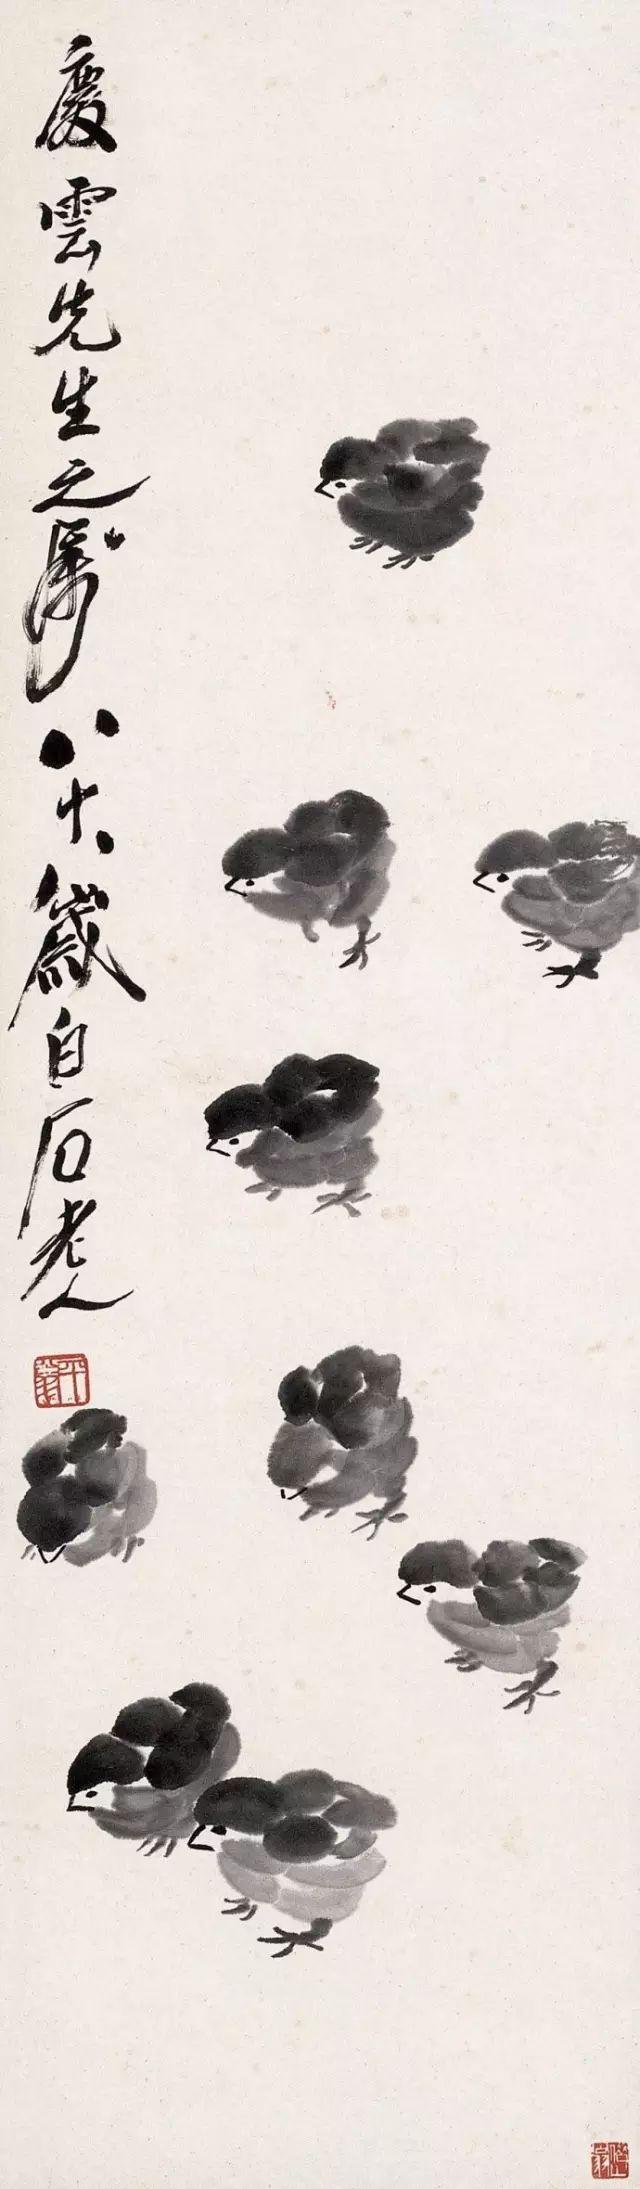 慶雲先生之屬八十歲白石老人